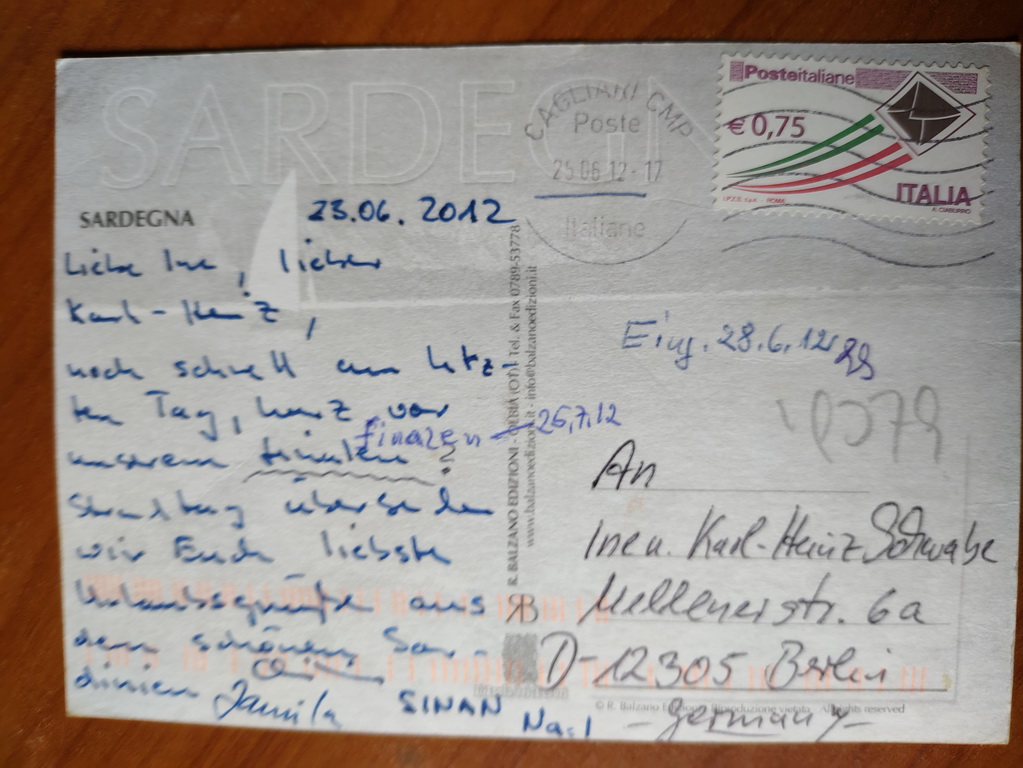 SARDEGN
Posteitaliane
€ 0,75
ITALIA
I.P.Z.S. S.p.A. - ROMA
CAGLIARI CMP
Poste
25 06 12 - 17
Italiane
SARDEGNA
23.06. 2012
Liebe Ine, lieber
Karl-Heinz,
noch schnell am letz-
ten Tag, kurz vor
unserem finalen
finalen 26.7.12
?
Strandtag übersenden
wir Euch liebste
Urlaubsgrüße aus
dem schönen Sar-
dinien
Jamila SINAN
R. BALZANO EDIZIONI - OLBIA (OT) Tel. & Fax 0789-53778
www.balzanoedizioni.it - info@balzanoedizioni.it
RB
Eing. 28.6.12
An
Ine u. Karl-Heinz Schwabe
Mellenerstr. 6a
D-12305 Berlin
- Germany -
© R. Balzano Edizioni Riproduzione vietata - All rights reserved